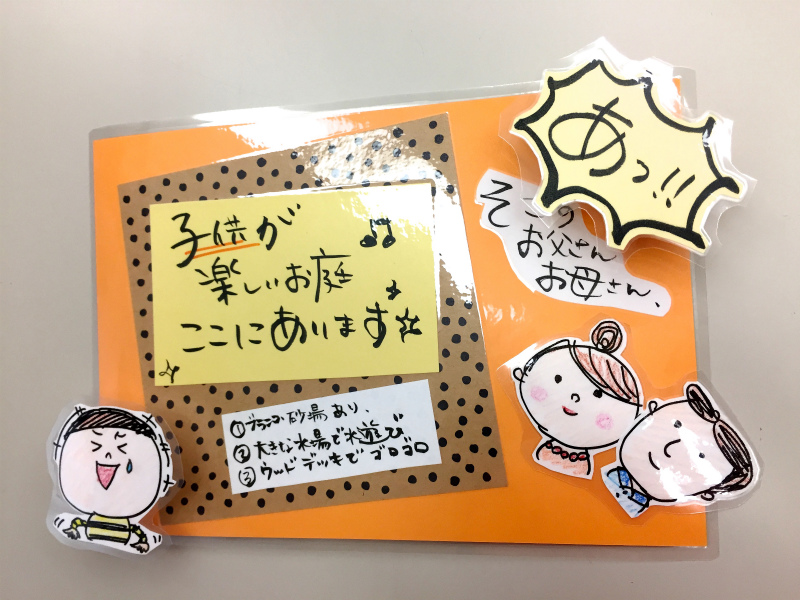 あっ!!
そこの
お父さん
お母さん、
子供が
楽しいお庭
ここにあります
①ブランコ・砂場あり、
②大きな水場で水遊び
③ウッドデッキでゴロゴロ